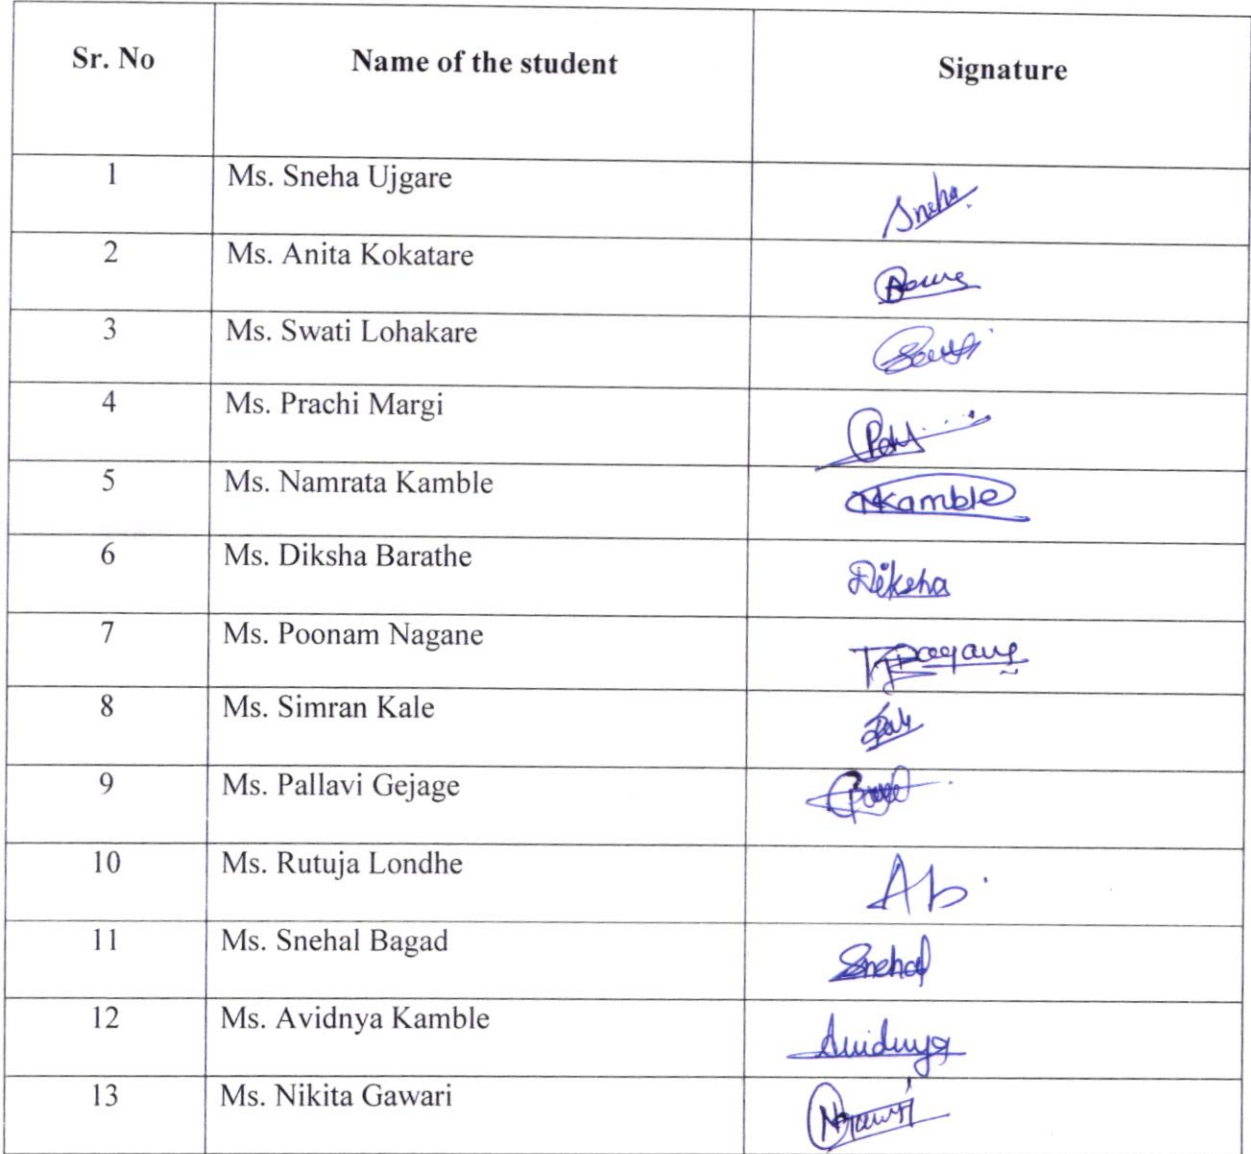 Sr. No Name of the student Signature
1 Ms. Sneha Ujgare Sneha
2 Ms. Anita Kokatare
3 Ms. Swati Lohakare
4 Ms. Prachi Margi
5 Ms. Namrata Kamble NKamble
6 Ms. Diksha Barathe Diksha
7 Ms. Poonam Nagane
8 Ms. Simran Kale
9 Ms. Pallavi Gejage
10 Ms. Rutuja Londhe
11 Ms. Snehal Bagad Snehal
12 Ms. Avidnya Kamble Avidnya
13 Ms. Nikita Gawari